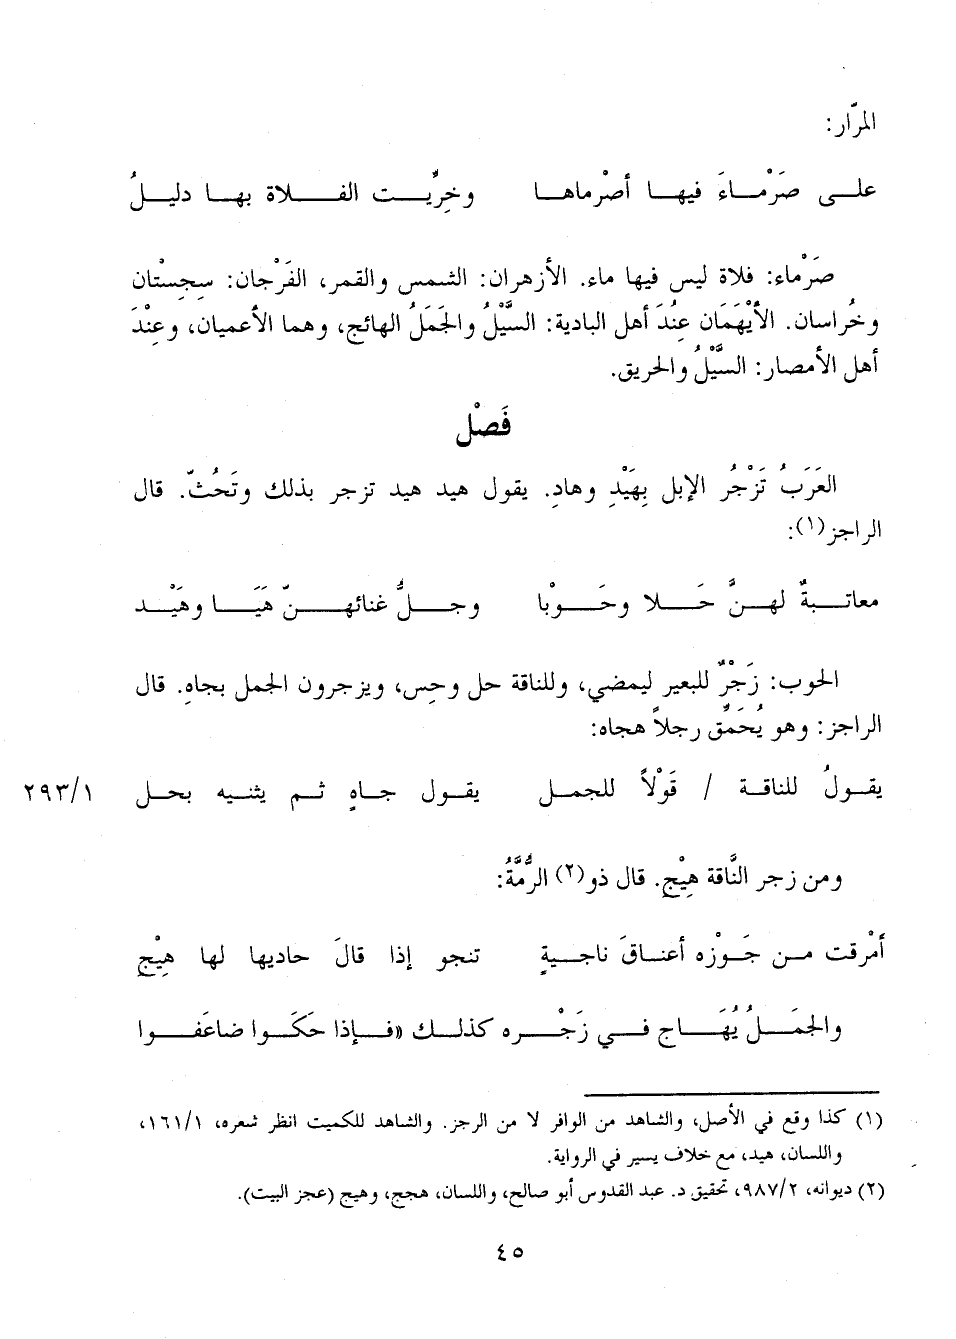 المرّار:
على صَرْماءَ فيها أصْرماها وخرِّيت الفلاة بها دليلُ
صَرْماء: فلاة ليس فيها ماء. الأزهران: الشمس والقمر، الفَرْجان: سِجِسْتان
وخُراسان. الأَيْهَمَان عِنْدَ أهل البادية: السَّيْلُ والجَمَلُ الهائج، وهما الأعميان، وعِنْدَ
أهل الأمصار: السَّيْلُ والحريق.
فَصْل
العَرَبُ تَزْجُر الإبل بِهَيْدِ وهادِ. يقول هيد هيد تزجر بذلك وتَحُثّ. قال
الراجز(١):
معاتبةٌ لهنَّ حَلا وحَوْبا وجلُّ غنائهنّ هَيَا وهَيْد
الحوب: زَجْرٌ للبعير ليمضي، وللناقة حل وحِس، ويزجرون الجمل بجاهِ. قال
الراجز: وهو يُحَمِّق رجلاً هجاه:
يقولُ للناقة / قَوْلاً للجمل يقول جاهِ ثم يثنيه بحل ٢٩٣/١
ومن زجر النَّاقة هِيْجِ. قال ذو(٢) الرُّمَّةُ:
أمْرقت من جَوْزه أعناقَ ناجيةٍ تنجو إذا قالَ حاديها لها هِيْجِ
والجَمَلُ يُهَاج في زَجْره كذلك «فإذا حَكَوا ضاعَفوا
(١) كذا وقع في الأصل، والشاهد من الوافر لا من الرجز. والشاهد للكميت انظر شعره، ١٦١/١،
واللسان، هيد، مع خلاف يسير في الرواية.
(٢) ديوانه، ٩٨٧/٢، تحقيق د. عبد القدوس أبو صالح، واللسان، هجج، وهيج (عجز البيت).
٤٥